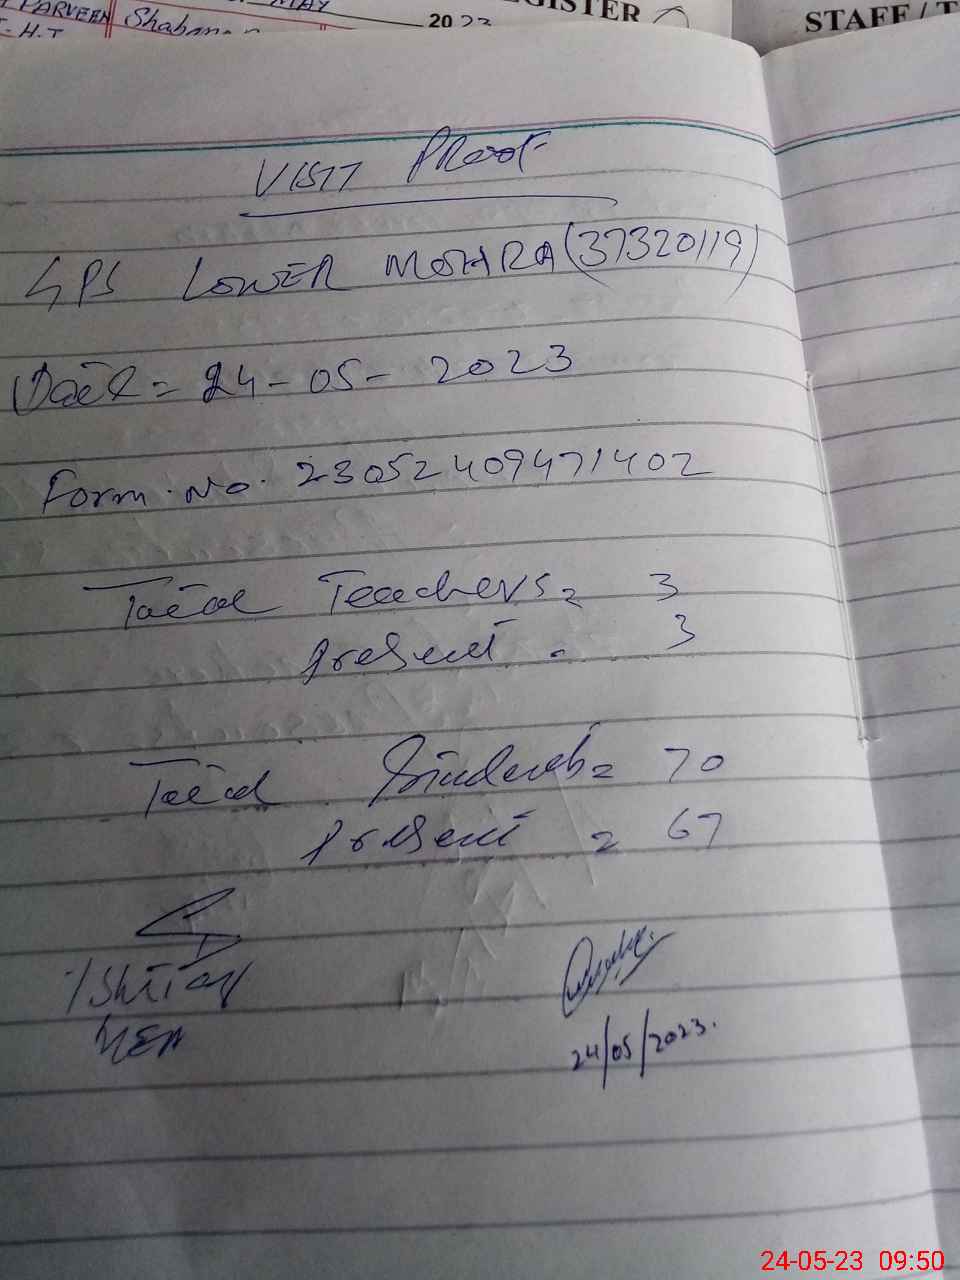 PARVEEN
MAY
2022
REGISTER
STAFF / T
-H.T
Visit Proof
GPS LOWER MOHRA (37320119)
Date = 24-05-2023
Form. No. 23052409471402
Total Teachers = 3
Present = 3
Total Students = 70
Present = 67
Ishtiaq
MEA
24/05/2023.
24-05-23 09:50